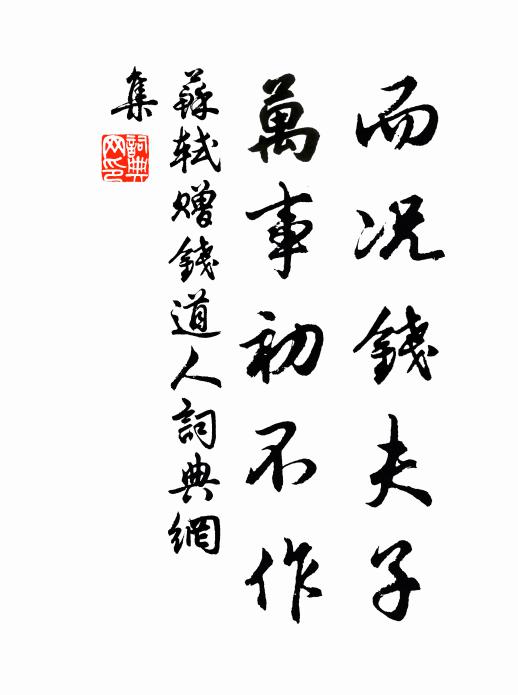 而况錢夫子
萬事初不作
蘇軾贈錢道人詞典網
集
詞典
网印